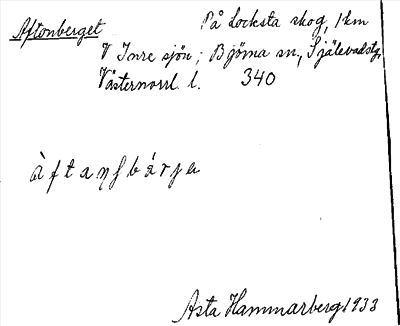 Aftonberget
På Locksta skog, 1 km
V Inre sjön; Björna sn, Själevadstg,
Västernorrl. l. 340
àftanſbárja
Asta Hammarberg 1933